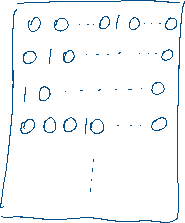 0 0 ... 0 1 0 ... 0
0 1 0 ... 0
1 0 ... 0
0 0 0 1 0 ... 0
⋮